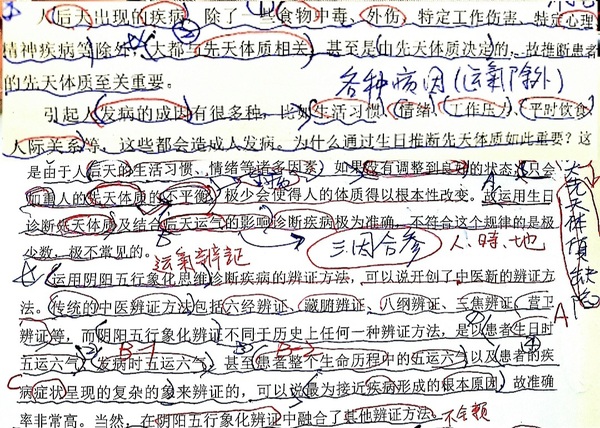 人后天出现的疾病，除了一些食物中毒、外伤、特定工作伤害、特定心理
精神疾病等除外，大都与先天体质相关，甚至是由先天体质决定的，故推断患者
的先天体质至关重要。
各种病因(运氣除外)
引起人发病的成因有很多种，比如生活习惯、情绪、工作压力、平时饮食、
人际关系等，这些都会造成人发病。为什么通过生日推断先天体质如此重要？这
是由于人后天的生活习惯、情绪等诸多因素，如果没有调整到良好的状态，只会
加重人的先天体质的不平衡，极少会使得人的体质得以根本性改变。故运用生日
诊断先天体质及结合后天运气的影响诊断疾病极为准确，不符合这个规律的是极
少数，极不常见的。
三因合参 人、時、地
运氣辨証
运用阴阳五行象化思维诊断疾病的辨证方法，可以说开创了中医新的辨证方
法。传统的中医辨证方法包括六经辨证、藏腑辨证、八纲辨证、三焦辨证、营卫
辨证等，而阴阳五行象化辨证不同于历史上任何一种辨证方法，是以患者生日时
五运六气、发病时五运六气、甚至患者整个生命历程中的五运六气以及患者的疾
B-1 B-2
病症状呈现的复杂的象来辨证的，可以说最为接近疾病形成的根本原因，故准确
率非常高。当然，在阴阳五行象化辨证中融合了其他辨证方法，